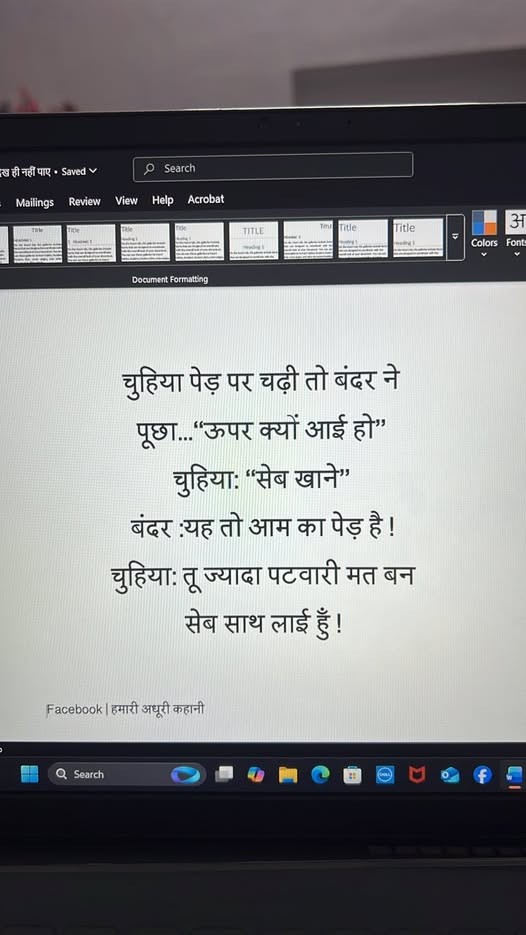 ख ही नहीं पाए • Saved
Search
Mailings Review View Help Acrobat
Title Title Title Title TITLE Title Title Title
Heading 1 Heading 1 Heading 1 Heading 1 Heading 1
Colors
Fonts
Document Formatting
चुहिया पेड़ पर चढ़ी तो बंदर ने
पूछा...“ऊपर क्यों आई हो”
चुहिया: “सेब खाने”
बंदर :यह तो आम का पेड़ है !
चुहिया: तू ज्यादा पटवारी मत बन
सेब साथ लाई हूँ !
Facebook | हमारी अधूरी कहानी
Search
DELL